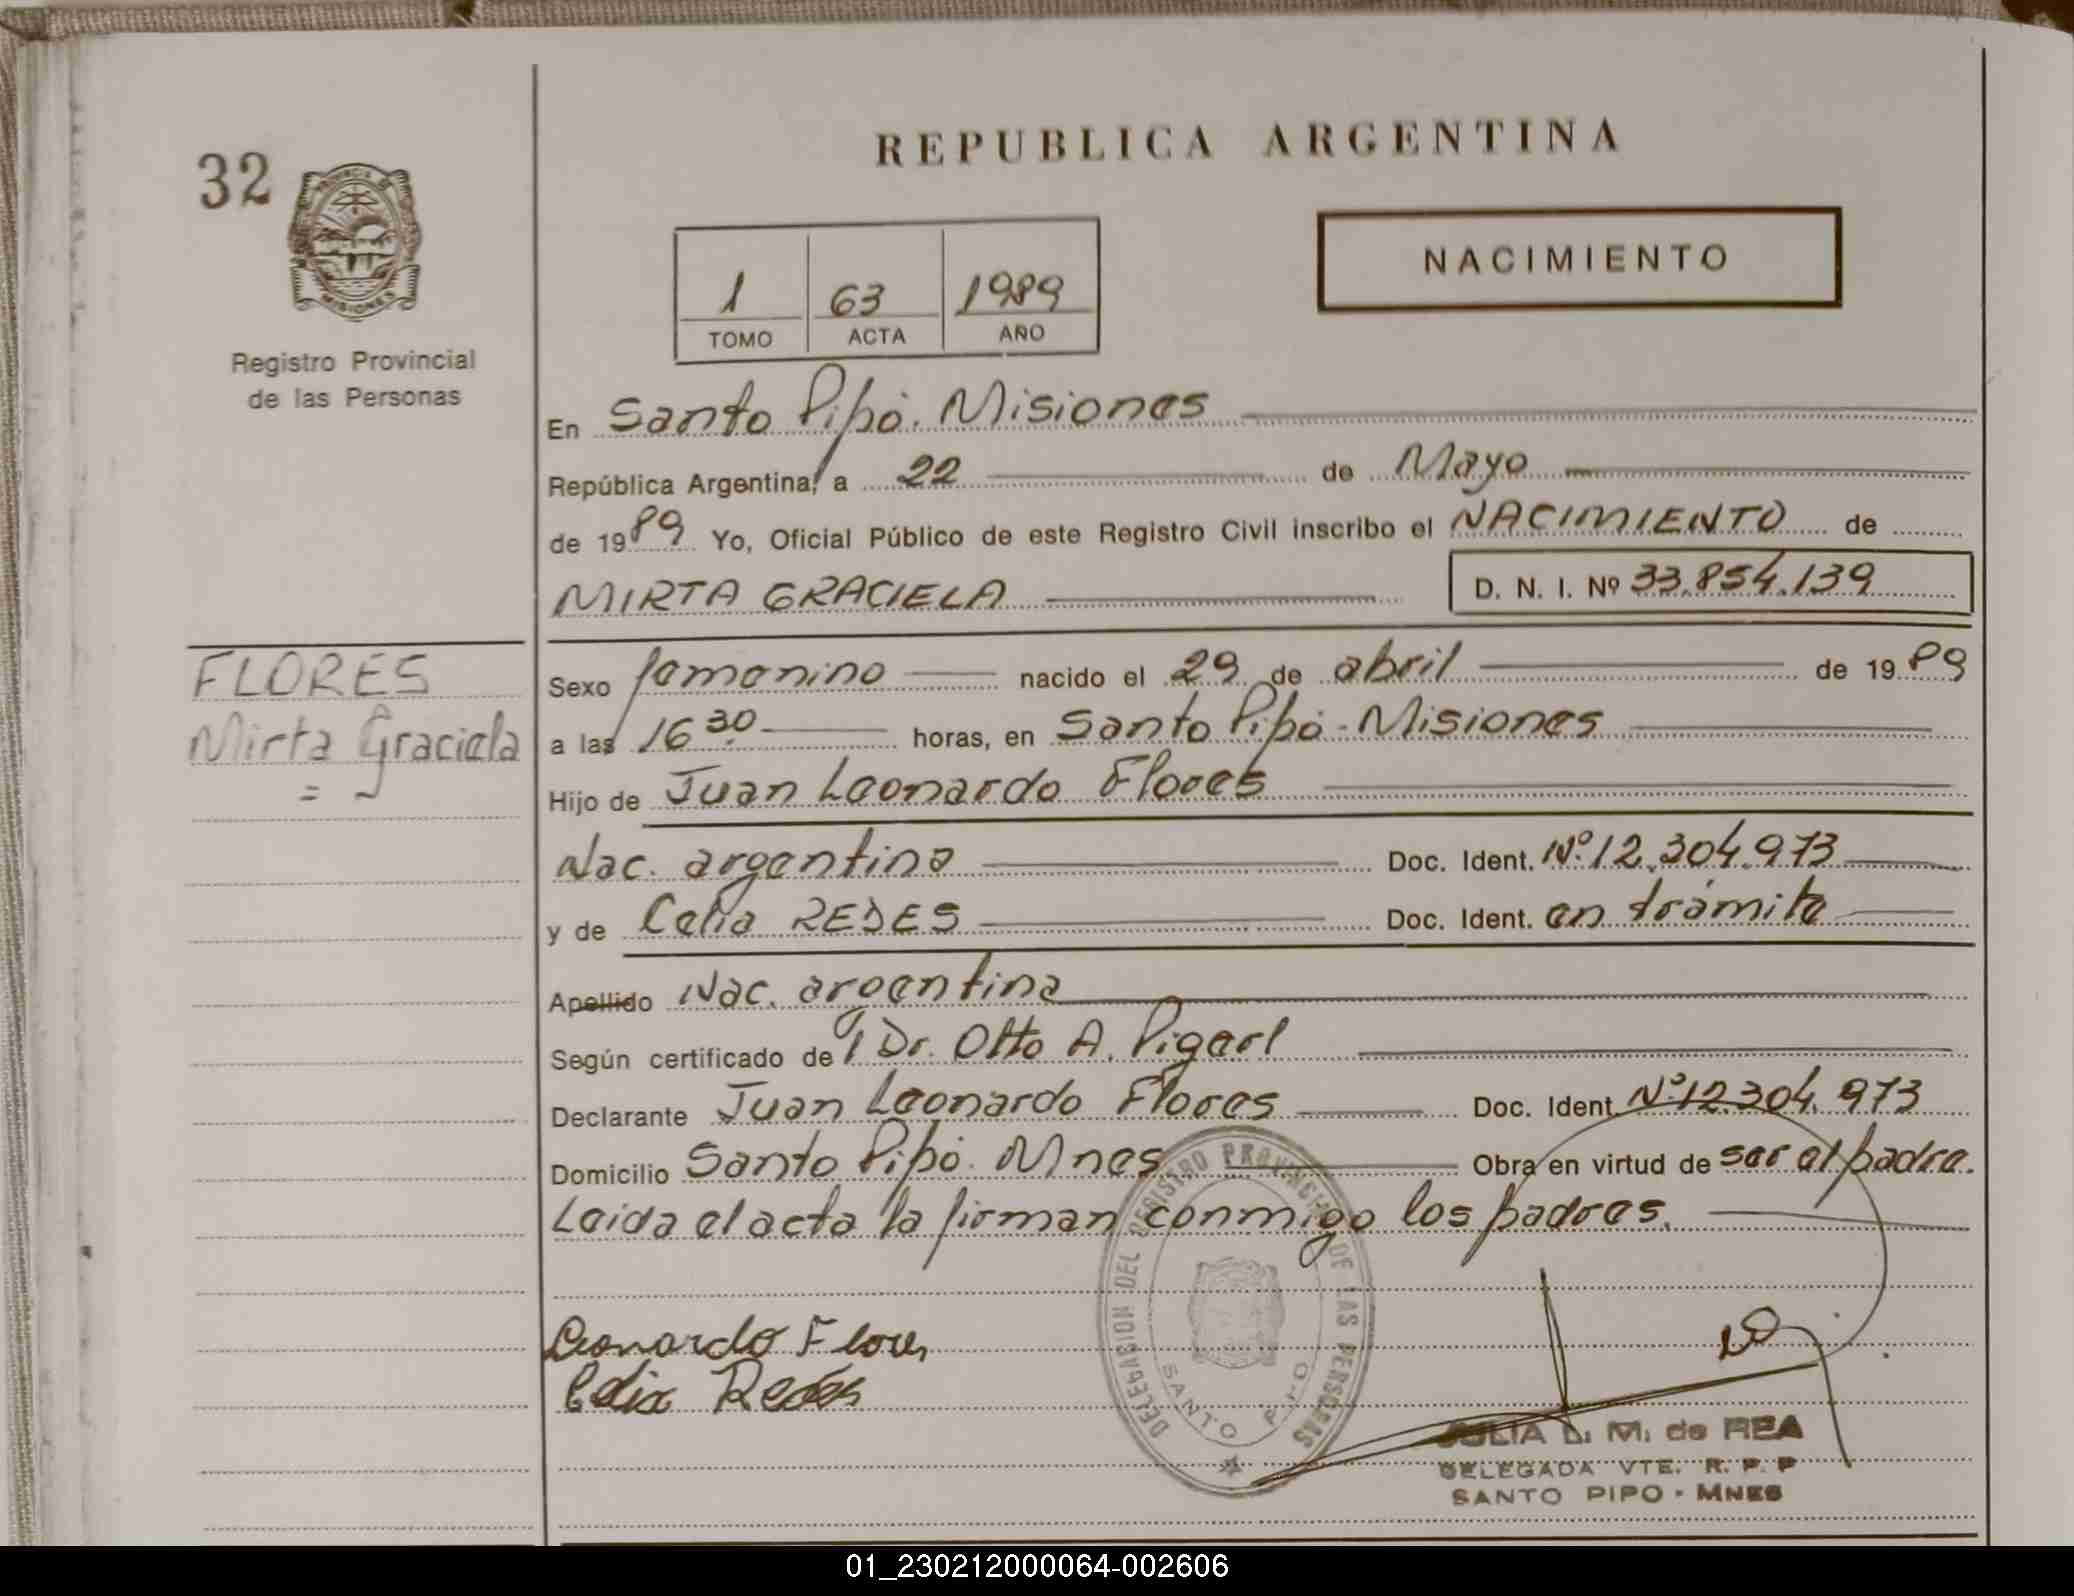 REPUBLICA ARGENTINA
32
PROVINCIA DE
MISIONES
Registro Provincial
de las Personas
NACIMIENTO
1 63 1989
TOMO ACTA AÑO
En Santo Pipó. Misiones
República Argentina, a 22 de Mayo
de 1989 Yo, Oficial Público de este Registro Civil inscribo el NACIMIENTO de
MIRTA GRACIELA D. N. I. Nº 33.854.139
FLORES
Mirta Graciela
=
Sexo femenino nacido el 29 de abril de 1989
a las 16 30 horas, en Santo Pipó - Misiones
Hijo de Juan Leonardo Flores
Nac. argentina Doc. Ident. Nº 12.304.973
y de Celia REDES Doc. Ident. en trámite
Apellido Nac. argentina
Según certificado de Dr. Otto A.
Declarante Juan Leonardo Flores Doc. Ident. Nº 12.304.973
Domicilio Santo Pipó. Mnes Obra en virtud de ser el padre.
Leida el acta la firman conmigo los padres.
DELEGACION DEL REGISTRO PROVINCIAL DE LAS PERSONAS
SANTO PIPO
Leonardo Flores
Celia Redes
JULIA L. M. de REA
DELEGADA VTE. R. P. P
SANTO PIPO - MNES
01_230212000064-002606